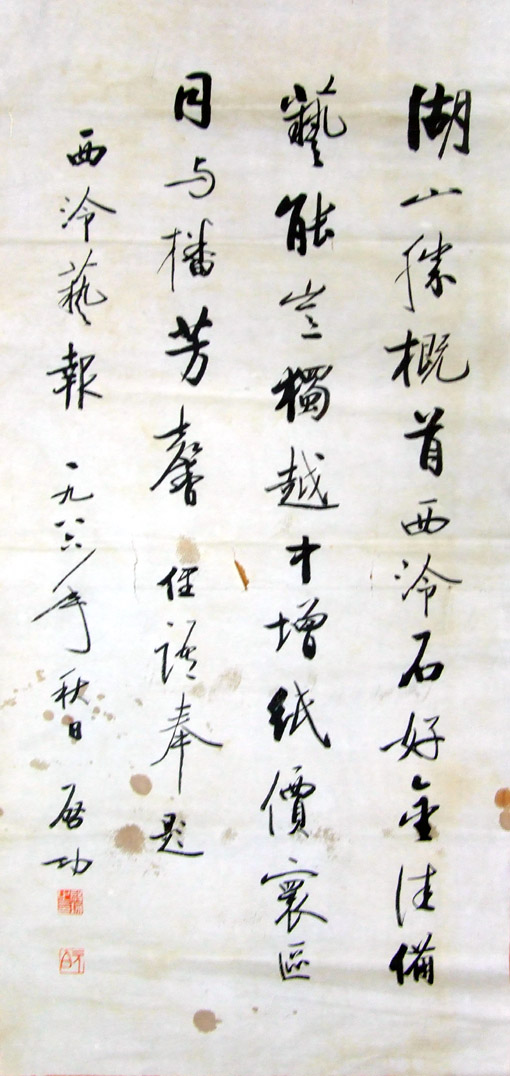 湖山勝概首西泠石好金佳備
藝能豈獨越中增紙價寰區
同与播芳馨 俚語奉題
西泠藝報 一九八六年秋日 启功